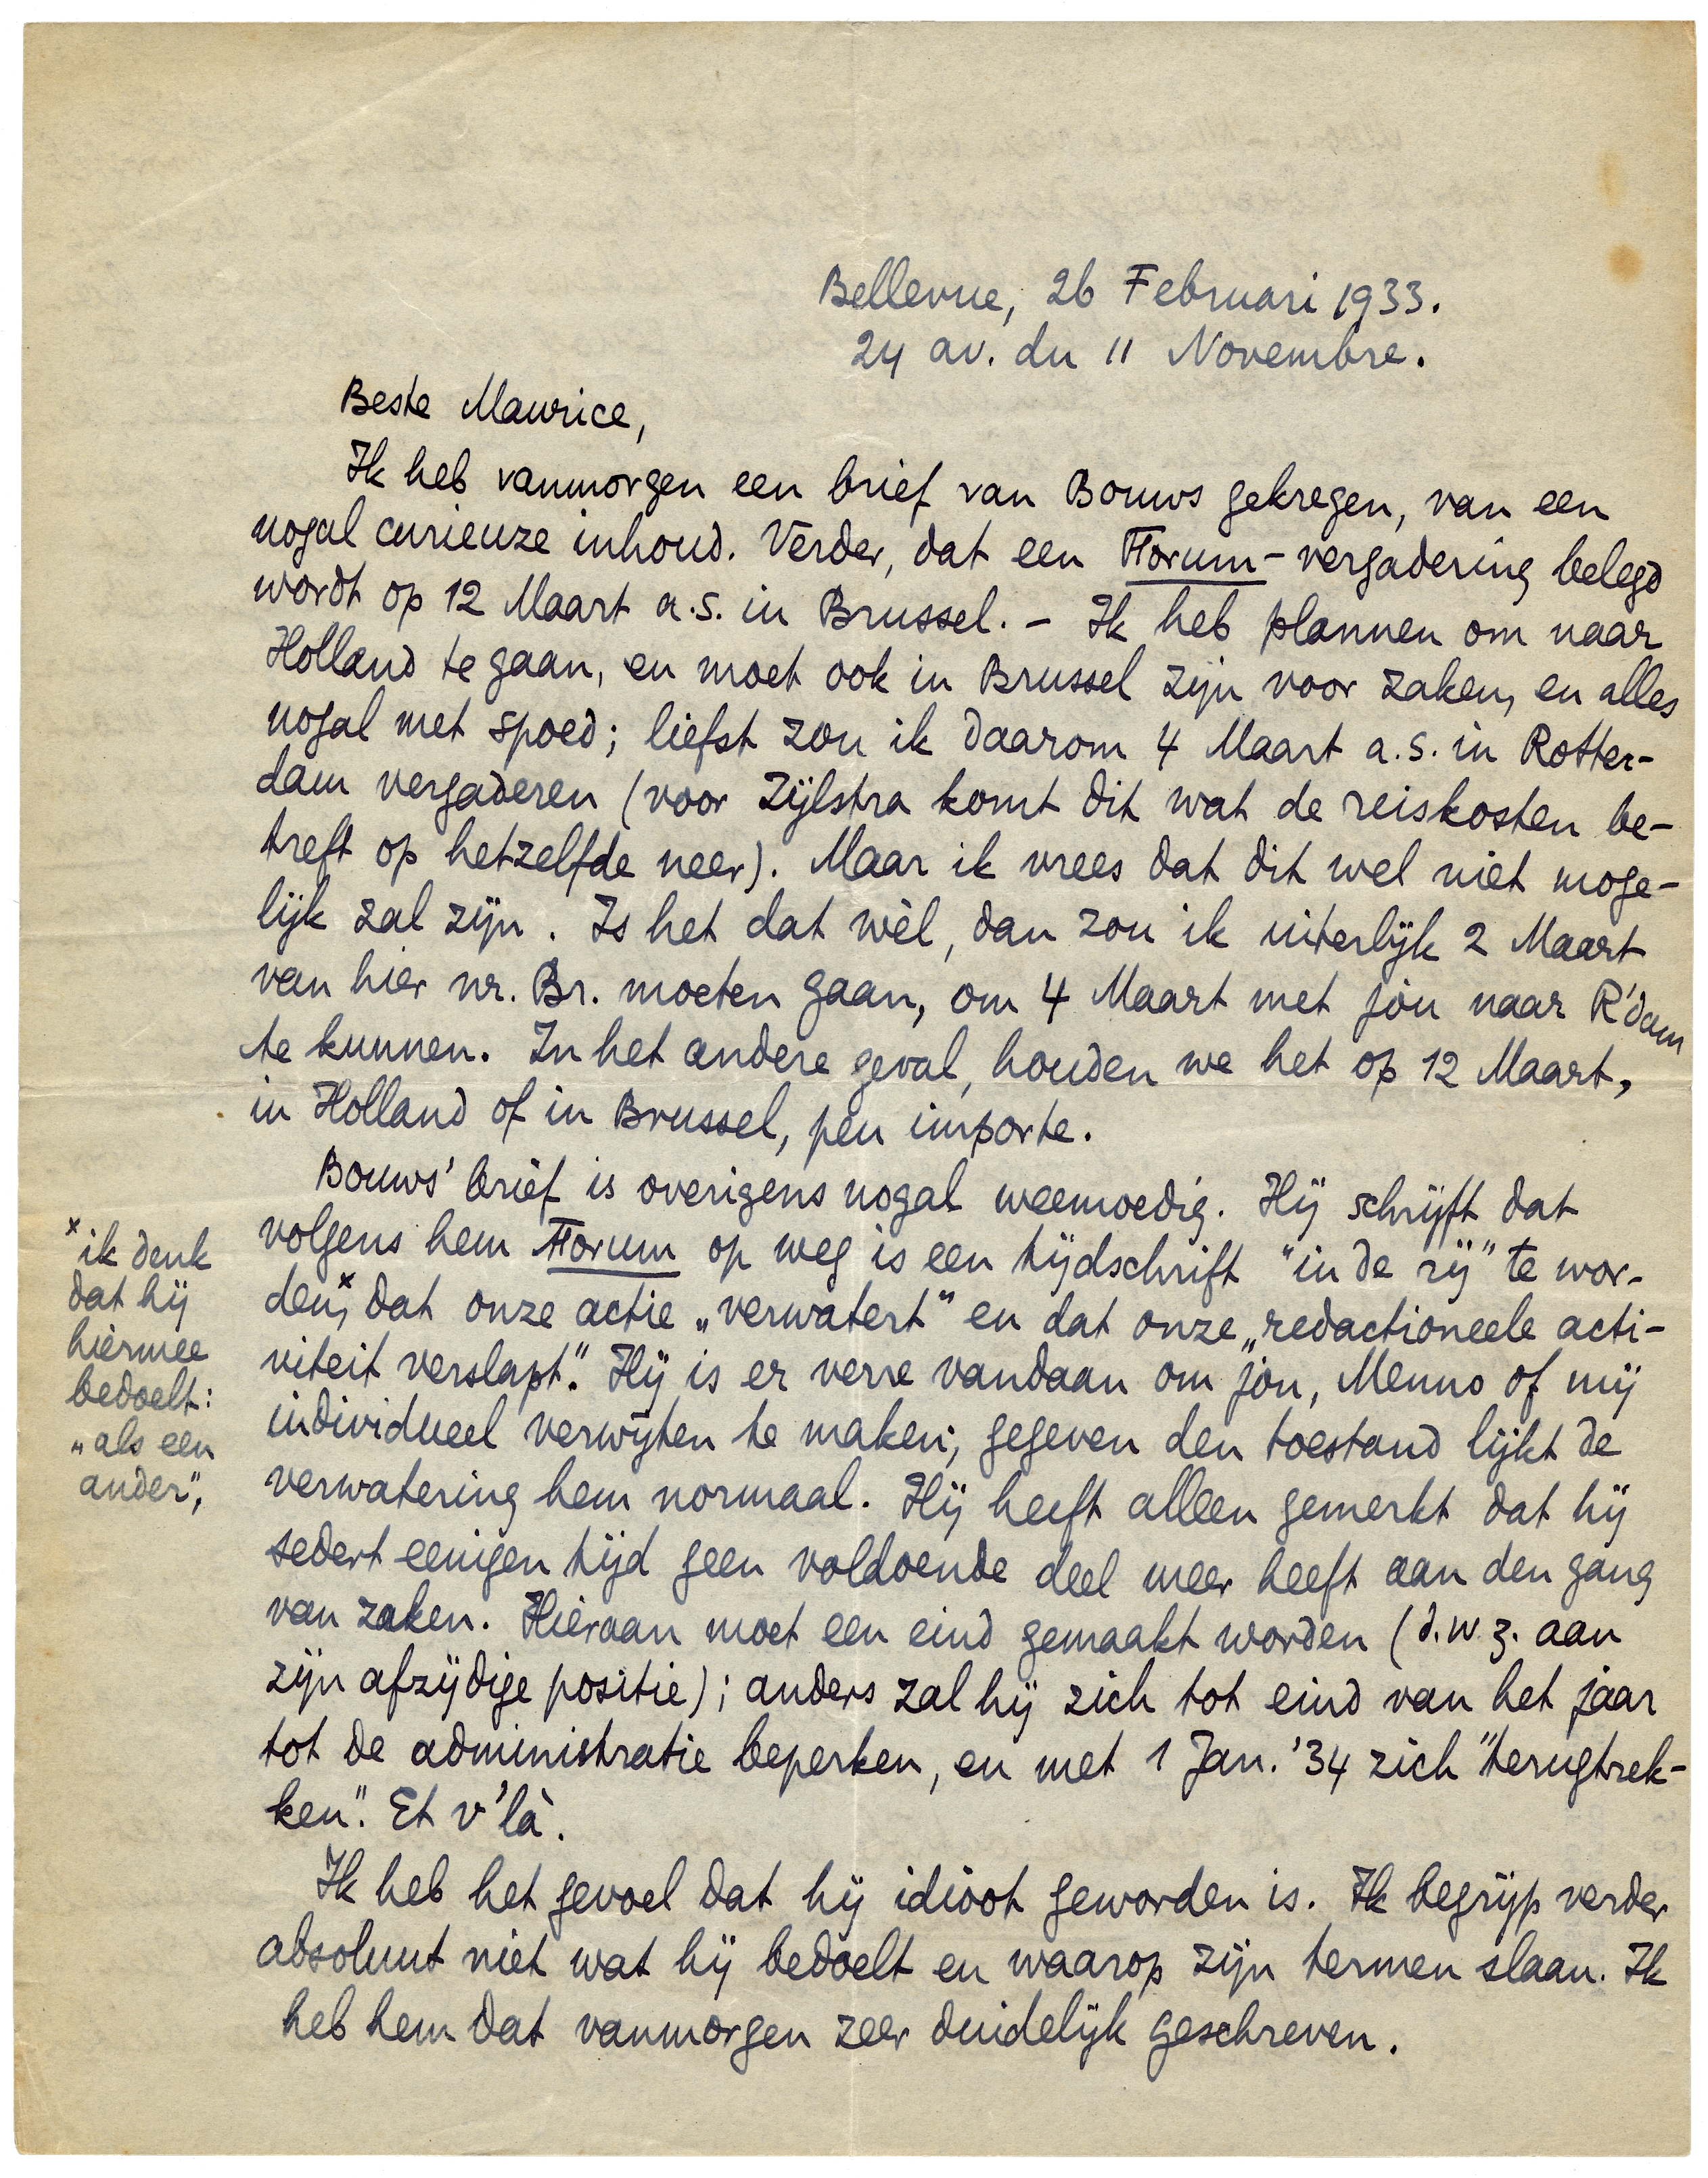 Bellevue, 26 Februari 1933.
24 av. du 11 Novembre.
Beste Maurice,
Ik heb vanmorgen een brief van Bouws gekregen, van een
nogal curieuze inhoud. Verder, dat een Forum-vergadering belegd
wordt op 12 Maart a.s. in Brussel. – Ik heb plannen om naar
Holland te gaan, en moet ook in Brussel zijn voor zaken, en alles
nogal met spoed; liefst zou ik daarom 4 Maart a.s. in Rotter-
dam vergaderen (voor Zijlstra komt dit wat de reiskosten be-
treft op hetzelfde neer). Maar ik vrees dat dit wel niet moge-
lijk zal zijn. Is het dat wèl, dan zou ik uiterlijk 2 Maart
van hier nr. Br. moeten gaan, om 4 Maart met jou naar R'dam
te kunnen. In het andere geval, houden we het op 12 Maart,
in Holland of in Brussel, peu importe.
Bouws' brief is overigens nogal weemoedig. Hij schrijft dat
volgens hem Forum op weg is een tijdschrift "in de rij" te wor-
den,ˣ dat onze actie „verwatert" en dat onze „redactioneele acti-
viteit verslapt". Hij is er verre vandaan om jou, Menno of mij
individueel verwijten te maken; gegeven den toestand lijkt de
verwatering hem normaal. Hij heeft alleen gemerkt dat hij
sedert eenigen tijd geen voldoende deel meer heeft aan den gang
van zaken. Hieraan moet een eind gemaakt worden (d.w.z. aan
zijn afzijdige positie); anders zal hij zich tot eind van het jaar
tot de administratie beperken, en met 1 Jan. '34 zich "terugtrek-
ken". Et v'là.
Ik heb het gevoel dat hij idioot geworden is. Ik begrijp verder
absoluut niet wat hij bedoelt en waarop zijn termen slaan. Ik
heb hem dat vanmorgen zeer duidelijk geschreven.
ˣ ik denk
dat hij
hiermee
bedoelt:
„als een
ander",